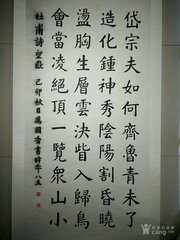 岱宗夫如何齊魯青未了
造化鍾神秀陰陽割昏曉
盪胸生層雲決眥入歸鳥
會當凌絕頂一覽衆山小
杜甫詩望嶽 己卯秋日國香書時年八五